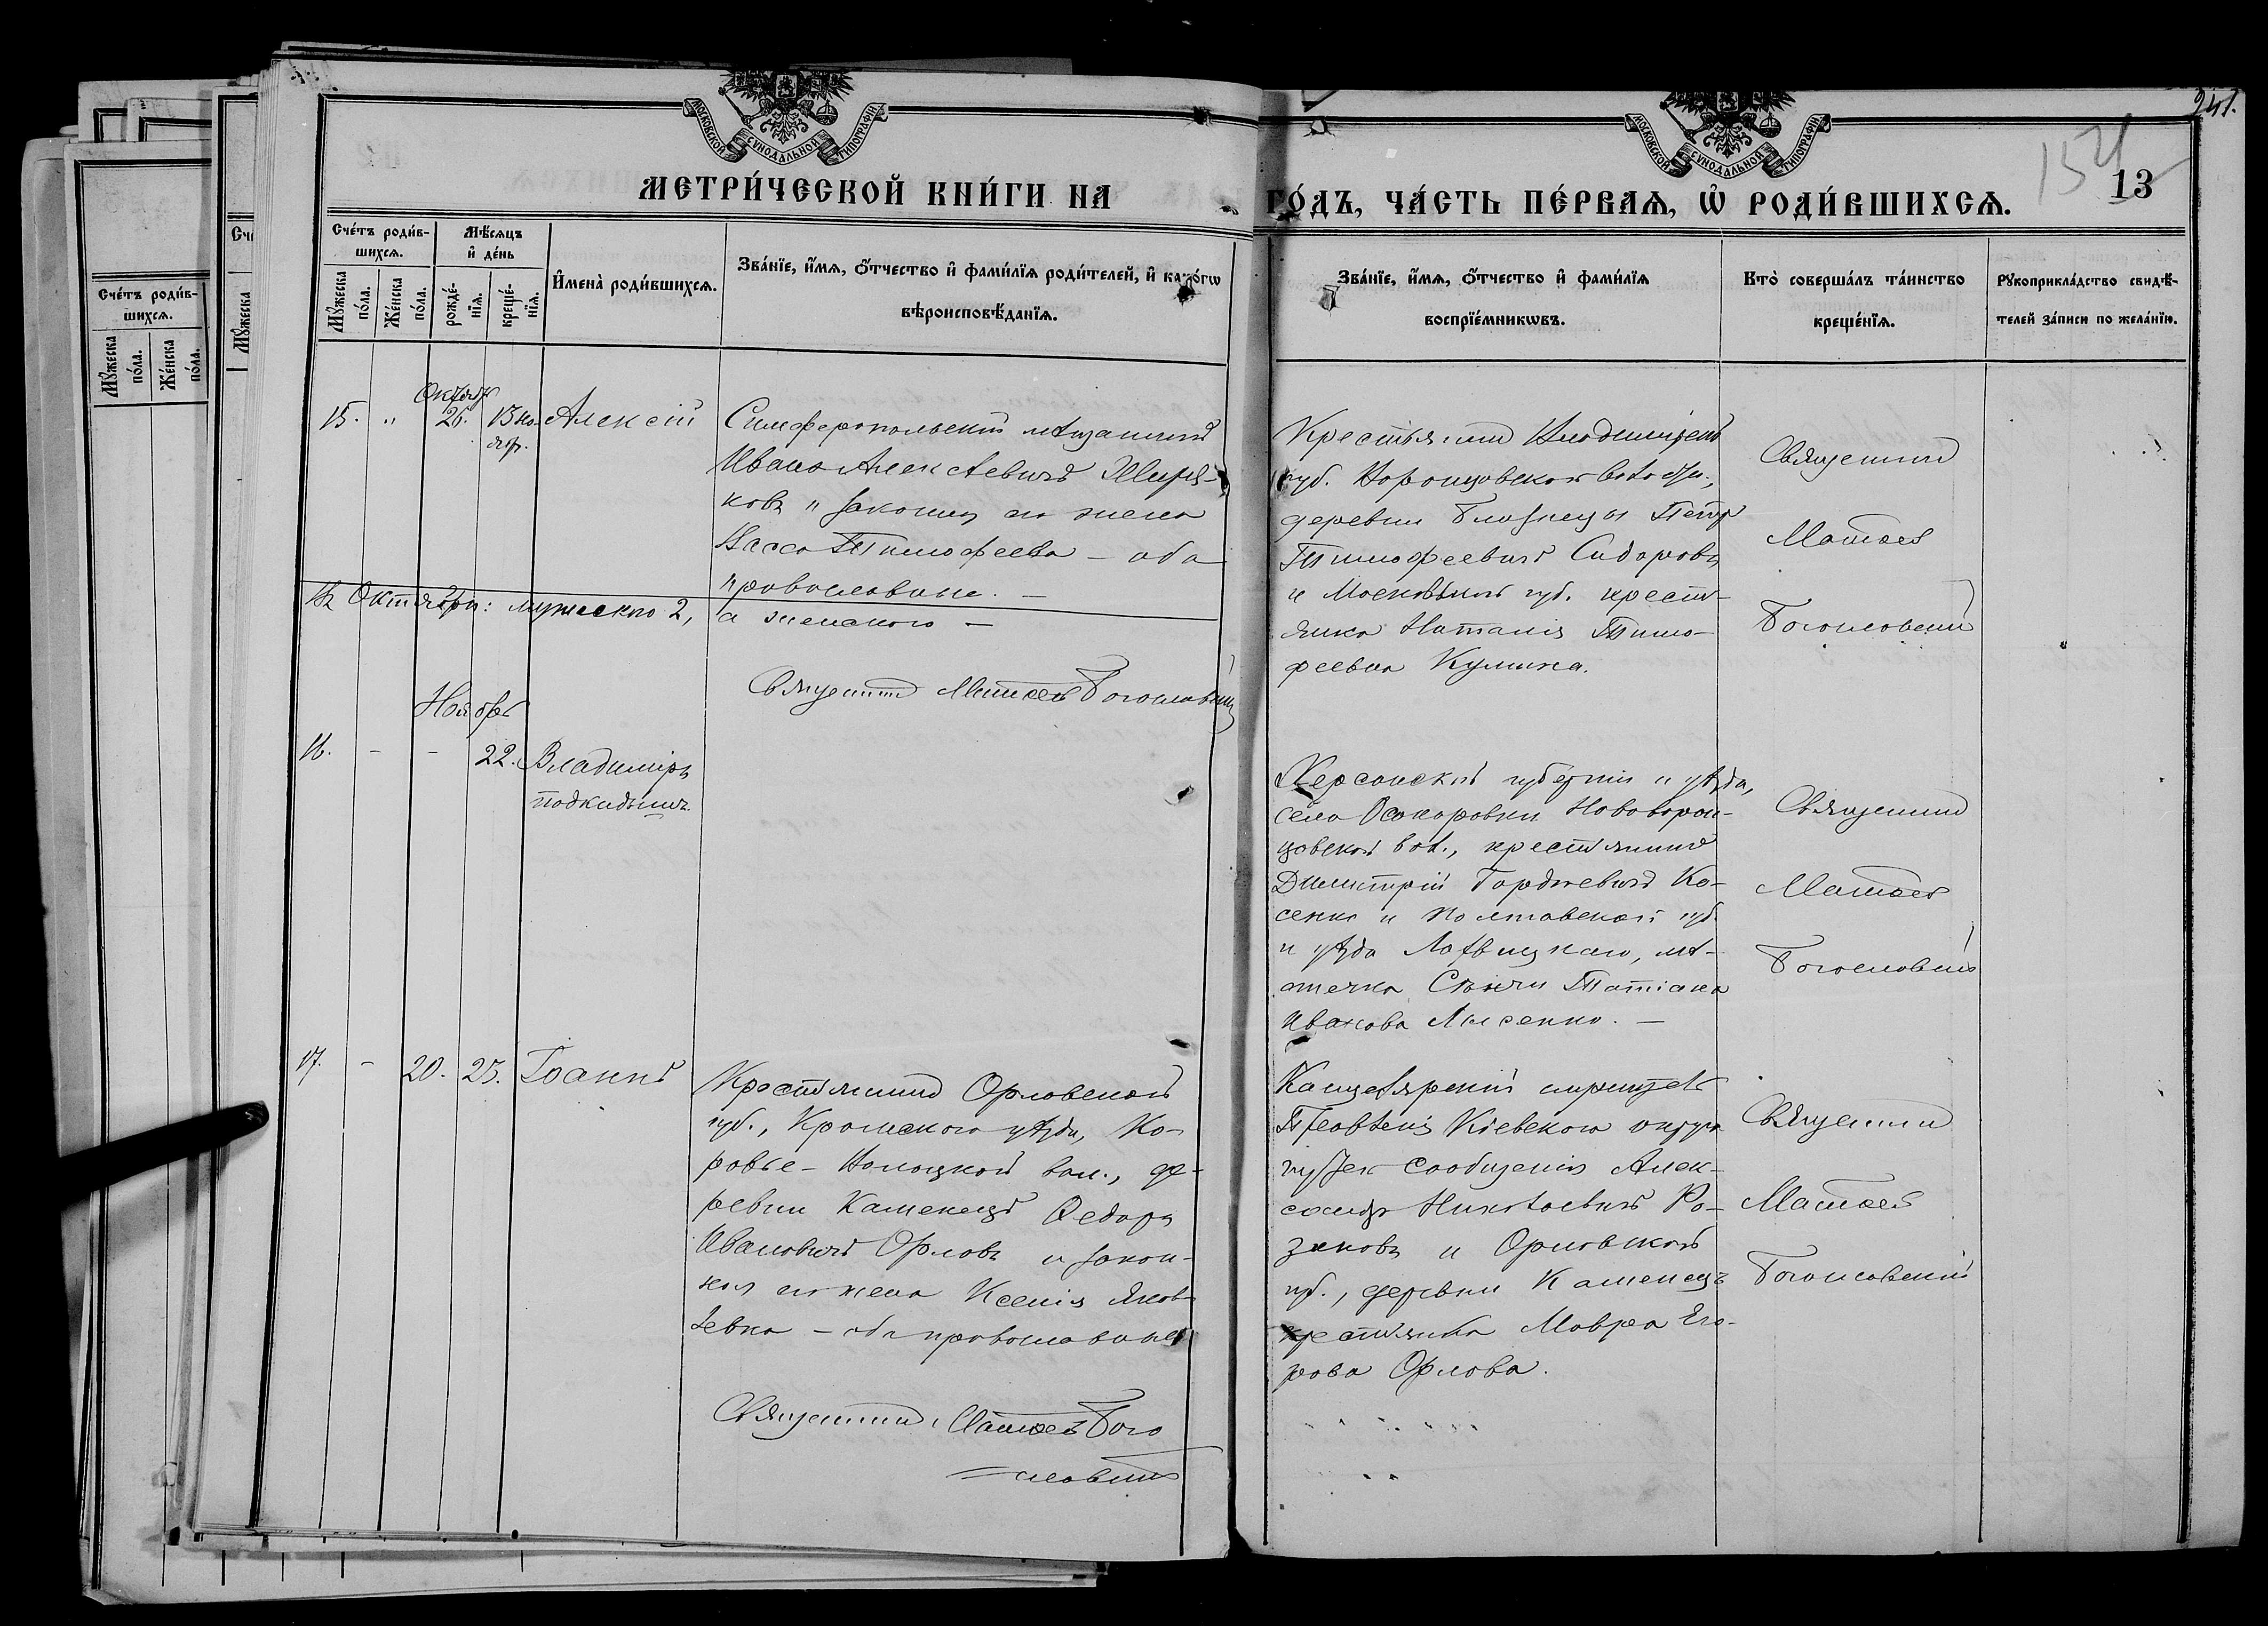 241.
154
13
МОСКОВСКОЙ СУНОДАЛЬНОЙ ТИПОГРАФІИ
МОСКОВСКОЙ СУНОДАЛЬНОЙ ТИПОГРАФІИ
МЕТРИ́ЧЕСКОЙ КНИ́ГИ НА
ГО́ДЪ, ЧА́СТЬ ПЕ́РВАѦ, Ѽ РОДИ́ВШИХСѦ.
Сче́тъ роди́в-
шихсѧ.
Мꙋ́жеска по́ла.
Же́нска по́ла.
Мѣ́сѧцъ
и҆ де́нь
рожде́-
нїѧ.
креще́-
нїѧ.
И҆мена̀ роди́вшихсѧ.
Зва́нїе, и҆́мѧ, ѻ҆́тчество и҆ фами́лїѧ роди́телей, и҆ како́гѡ
вѣроисповѣ́данїѧ.
Зва́нїе, и҆́мѧ, ѻ҆́тчество и҆ фами́лїѧ
воспрїе́мникѡвъ.
Кто̀ соверша́лъ та́инство
креще́нїѧ.
Рꙋкоприкла́дство свидѣ́-
телей за́писи по жела́нїю.
Сче́тъ роди́в-
шихсѧ.
Мꙋ́жеска по́ла.
Же́нска по́ла.
Октябр
15. " 26. 13 но-
ябр.
Алексій
Симферопольскій мѣщанинъ
Иванъ Алексѣевичъ
ковъ и законная его жена
Тимофеева — оба
православные. —
Крестьянинъ
губ. Воронцовской волости,
деревни Близнецы Петръ
Тимофеевичъ Сидоровъ
и Московской губ. кресть-
янка Наталія Тимо-
феевна Кулика.
Священникъ
Матѳей
Богословскій
Въ Октябрѣ: мужескаго 2, а женскаго —
Священникъ Матѳей Богословскій
Ноябрь
16. - - 22. Владиміръ
подкидышъ.
Херсонской губерніи и уѣзда,
села Осокоровки Нововорон-
цовской вол., крестьянинъ
Димитрій Гордѣевичъ Ко-
сенко и Полтавской губ.
и уѣзда Лохвицкаго, мѣ-
стечка Сѣнчи Татіана
Иванова Лисенко. —
Священникъ
Матѳей
Богословскій
17. - 20. 25. Іоаннъ
Крестьянинъ Орловской
губ., Кромскаго уѣзда, Ко-
ровье-Болоцкой вол., де-
ревни Каменецъ Ѳедоръ
Ивановичъ Орловъ и закон-
ная его жена Ксенія Яков-
левна — оба православные
Канцелярскій служитель
Правленія Кіевскаго округа
путей сообщенія Алек-
сандръ Николаевичъ Ро-
зановъ и Орловской
губ., деревни Каменецъ
крестьянка Мавра Его-
рова Орлова.
Священникъ
Матѳей
Богословскій
Священникъ Матѳей Бого
=словскій